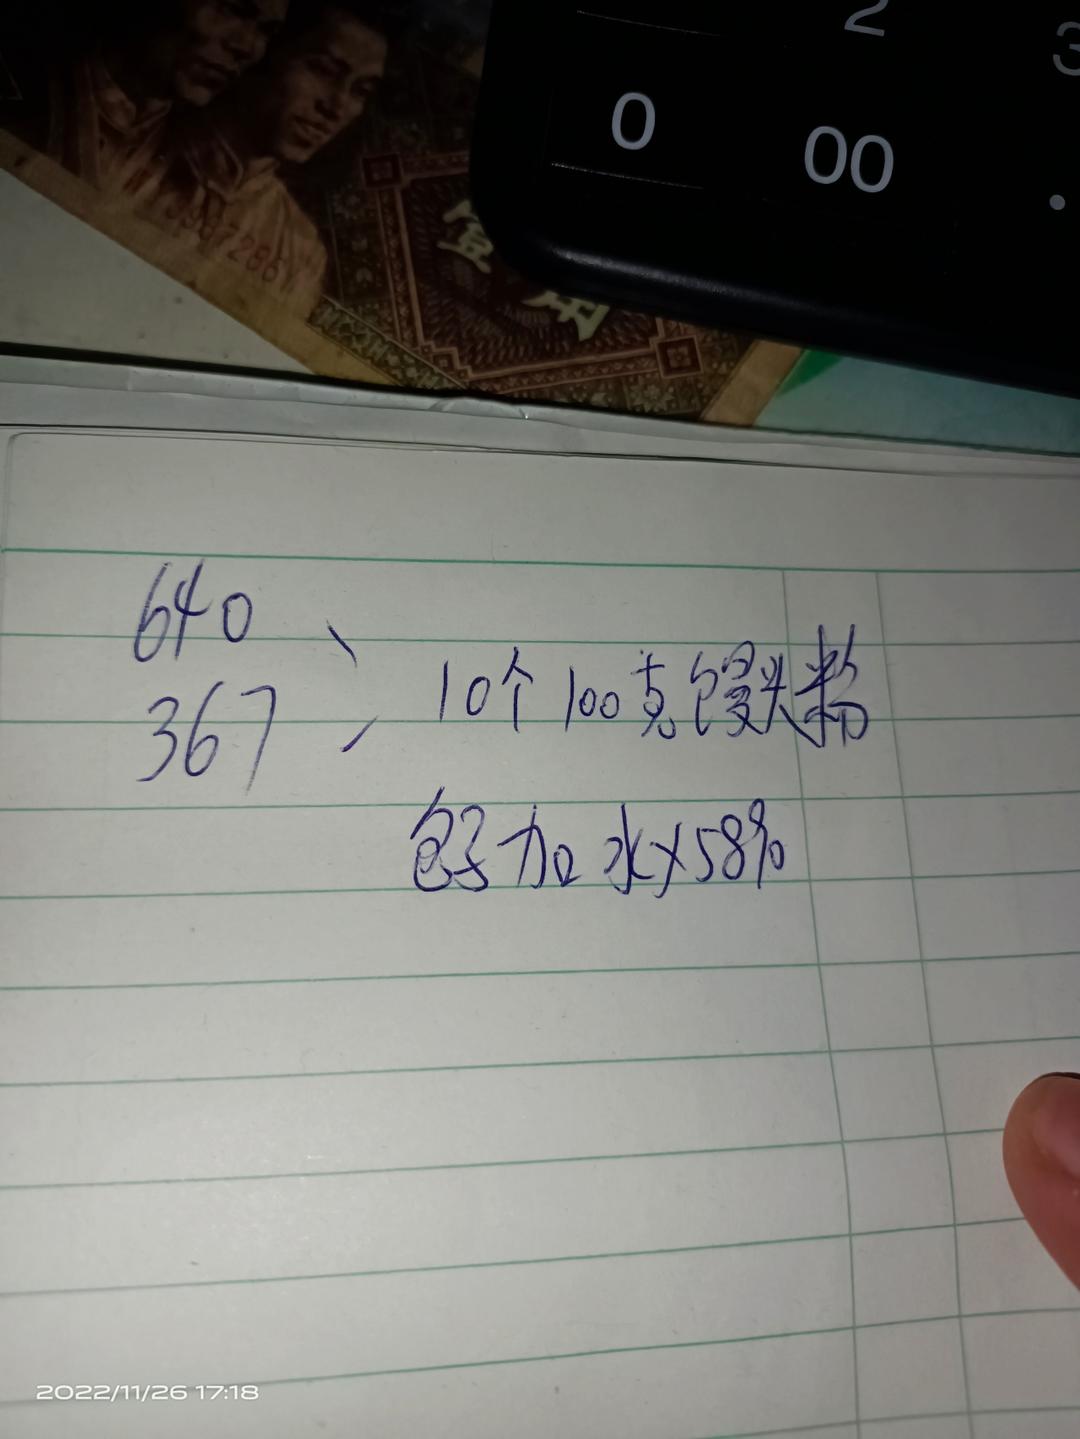 2
3
0
00
.
壹
角
640
367
10个100克馒头粉
包子加水×58%
2022/11/26 17:18